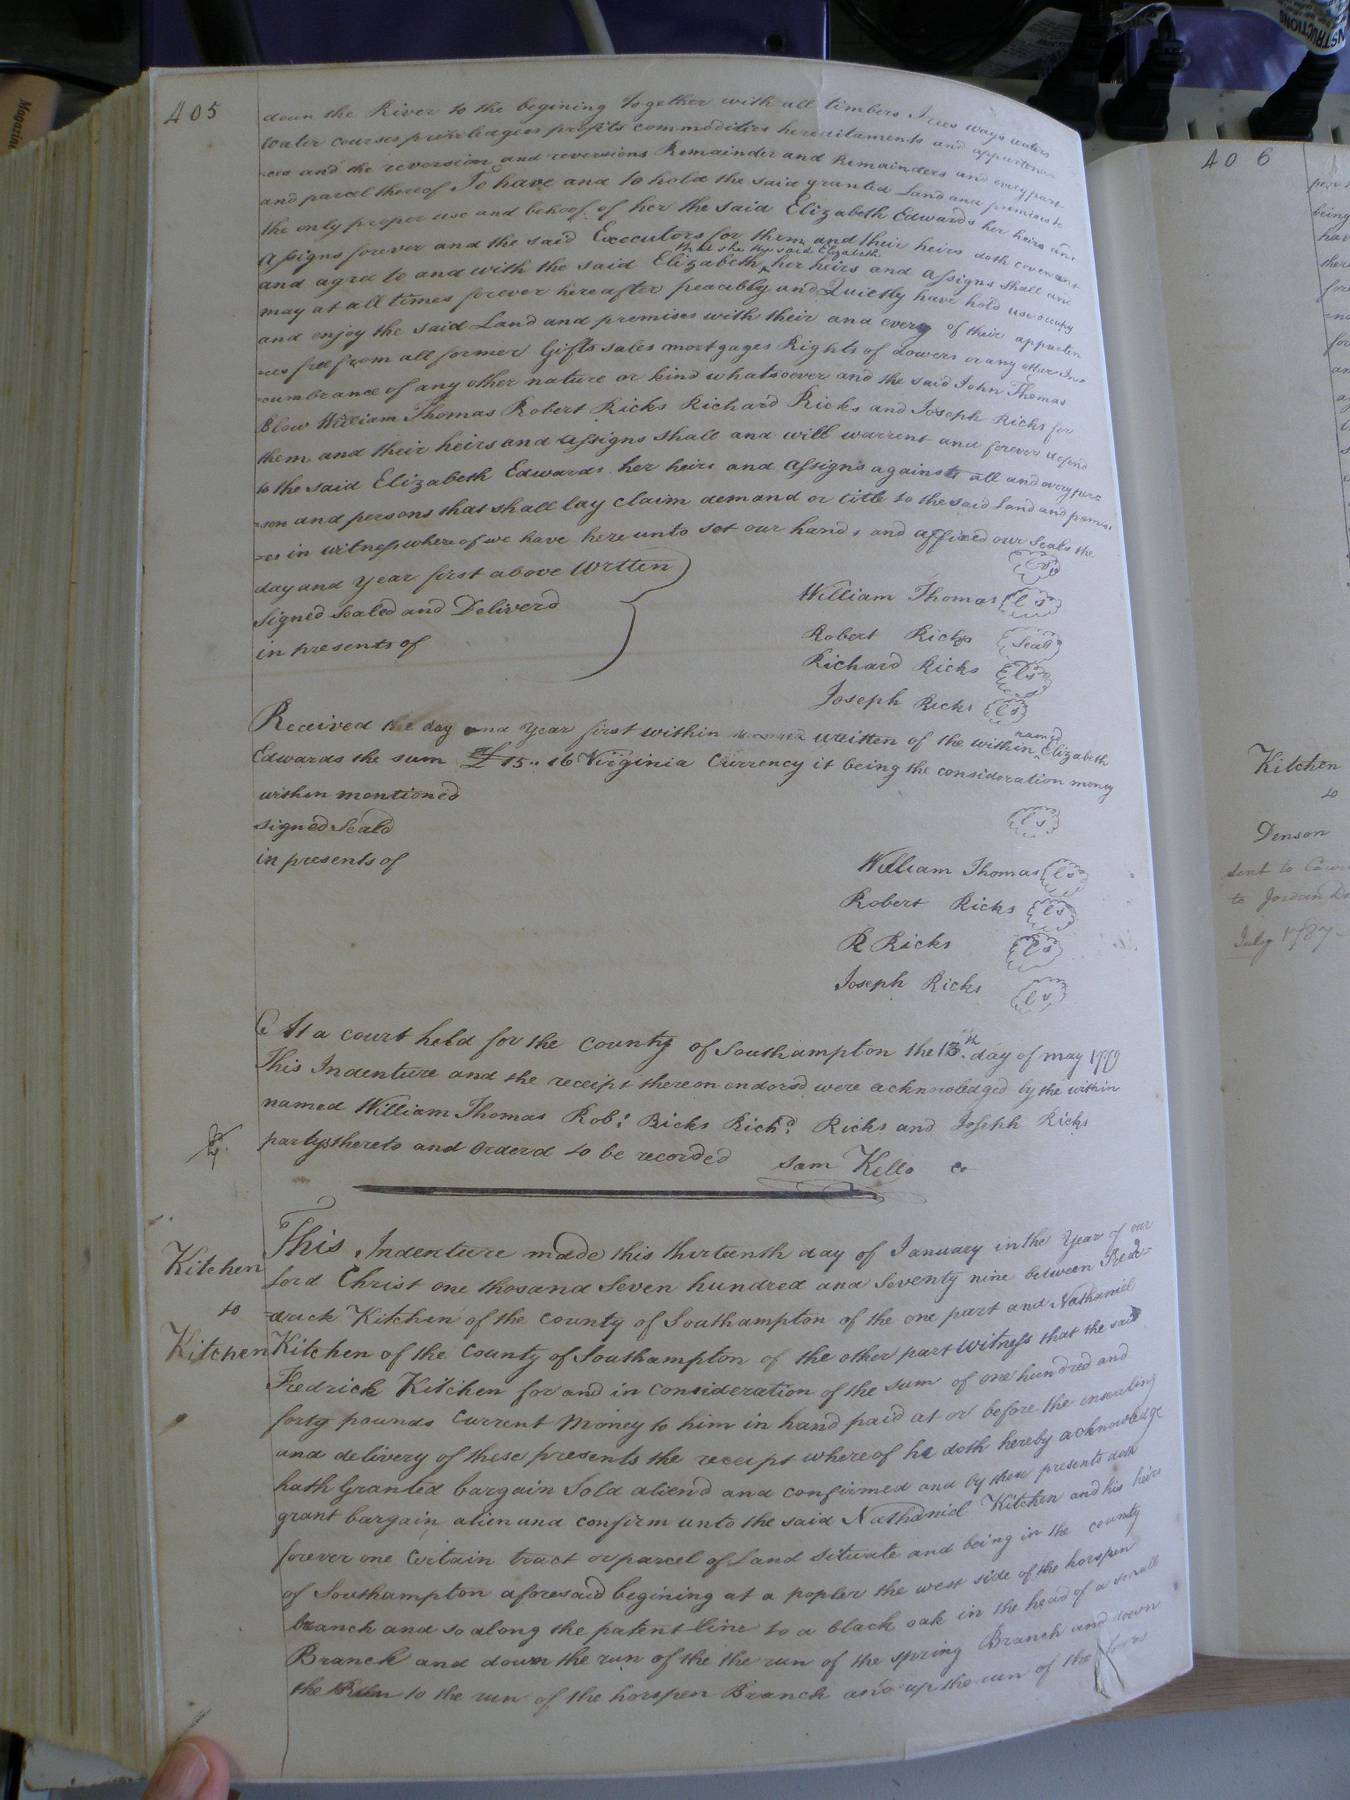 405
down the River to the begining together with all timbers Trees ways waters
water courses priviledges profits commodities hereditaments and appurtenan
-ces and the reversion and reversions Remainder and Remainders and every part
and parcel thereof To have and to hold the said granted Land and premises to
the only proper use and behoof of her the said Elizabeth Edwards her heirs and
assigns forever and the said Executors for them and their heirs doth covenant
that she the said Elizabeth
and agre to and with the said Elizabeth ‸ her heirs and assigns shall and
may at all times forever hereafter peacibly and Quietly have hold use occupy
and enjoy the said Land and premises with their and every of their appurten
-ces free from all former Gifts sales mortgages Rights of dowers or any other In=
-cumbrance of any other nature or kind whatsoever and the said John Thomas
Blow William Thomas Robert Ricks Richard Ricks and Joseph Ricks for
them and their heirs and assigns shall and will warrent and forever defend
to the said Elizabeth Edwards her heirs and assigns against all and every per=
-son and persons that shall lay claim demand or title to the said Land and premis
=es in witness where of we have here unto set our hands and affixed our seals the
day and year first above Written
signed sealed and Deliverd
in presents of
William Thomas ls
Robert Ricks seal
Richard Ricks ls
Joseph Ricks ls
Received the day and year first within written of the within named Elizabeth
Edwards the sum of £15.. 16 Virginia Currency it being the consideration money
within mentioned
signed Seald
in presents of
ls
William Thomas ls
Robert Ricks ls
R Ricks ls
Joseph Ricks ls
At a court held for the county of Southampton the 13th day of may 1779
This Indenture and the receipt thereon endorsd were acknowledged by the within
named William Thomas Robt Ricks Richd Ricks and Joseph Ricks
partys thereto and orderd to be recorded Sam Kello Cr
Kitchen
to
Kitchen
This Indenture made this thirteenth day of January in the Year of our
Lord Christ one thosand Seven hundred and Seventy nine between Fred=
=drick Kitchen of the county of Southampton of the one part and Nathaniel
Kitchen of the county of Southampton of the other part witness that the said
Fredrick Kitchen for and in consideration of the sum of one hundred and
forty pounds current money to him in hand paid at or before the insealing
and delivery of these presents the receipt whereof he doth hereby acknowledge
hath Granted bargain Sold aliend and confirmed and by these presents doth
grant bargain alien and confirm unto the said Nathaniel Kitchen and his heirs
forever one certain tract or parcel of Land situate and being in the county
of Southampton aforesaid begining at a popler the west side of the horspen
branch and so along the patent line to a black oak in the head of a small
Branch and down the run of the the run of the spring Branch and down
the Run to the run of the horspen Branch and up the run of the
406
Kitchen
to
Denson
sent to
to Jordan
July 1787